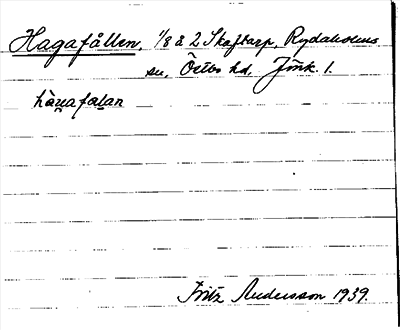 Hagafållen, 1/8 å 2 Skaftarp, Rydaholms
sn, Östbo hd, Jönk. l.
hàgafɑlan
Fritz Andersson 1939.